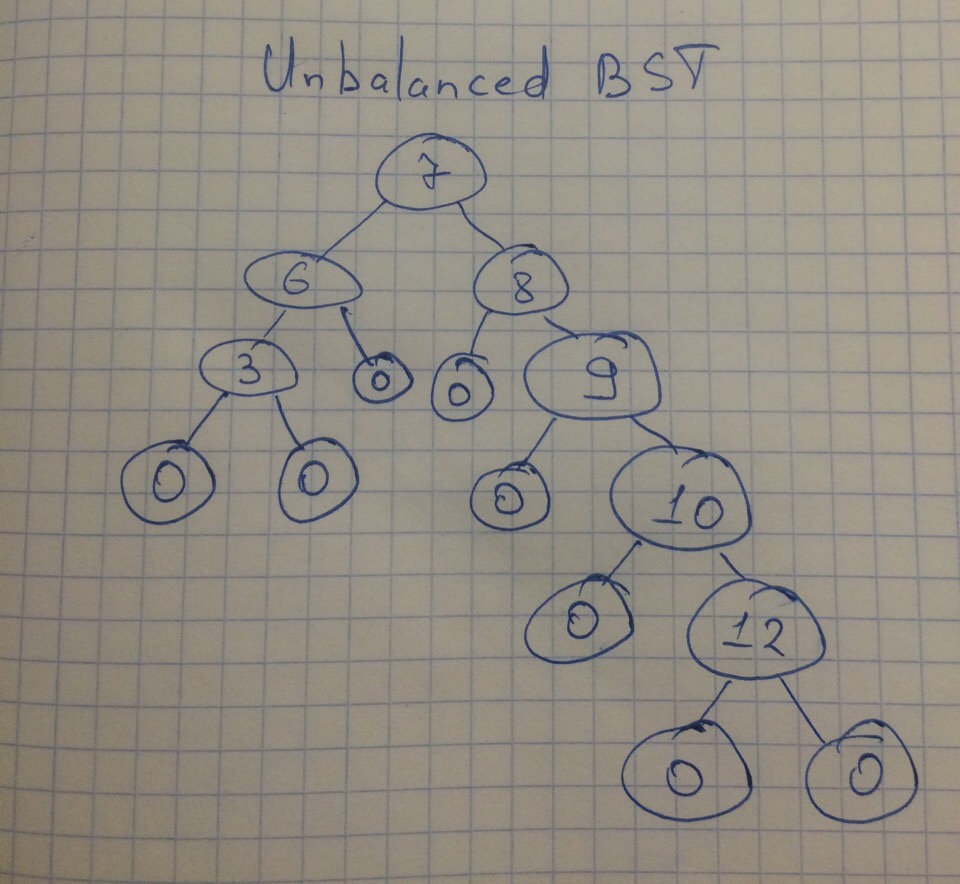 Unbalanced BST
7
6 8
3 0 0 9
0 0 0 10
0 12
0 0